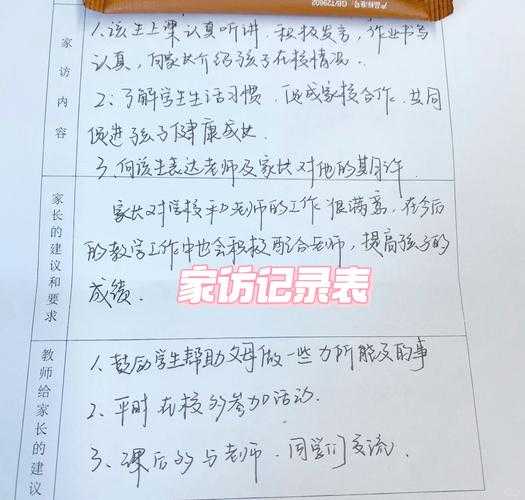 产品标准号:GB/T29602
家访内容
1.该生上课认真听讲.积极发言,作业书写
认真,向家长介绍孩子在校情况.
2、了解学生生活习惯,促成家校合作.共同
促进孩子健康成长
3.向该生表达老师及家长对他的期许.
家长的建议和要求
家长对学校和老师的工作很满意,在今后
的教学工作中也会积极配合老师,提高孩子的
成绩.
家访记录表
教师给家长的建议
1.鼓励学生帮助父母做一些力所能及的事
2.平时在校多参加活动.
3、课后多与老师.同学们交流.